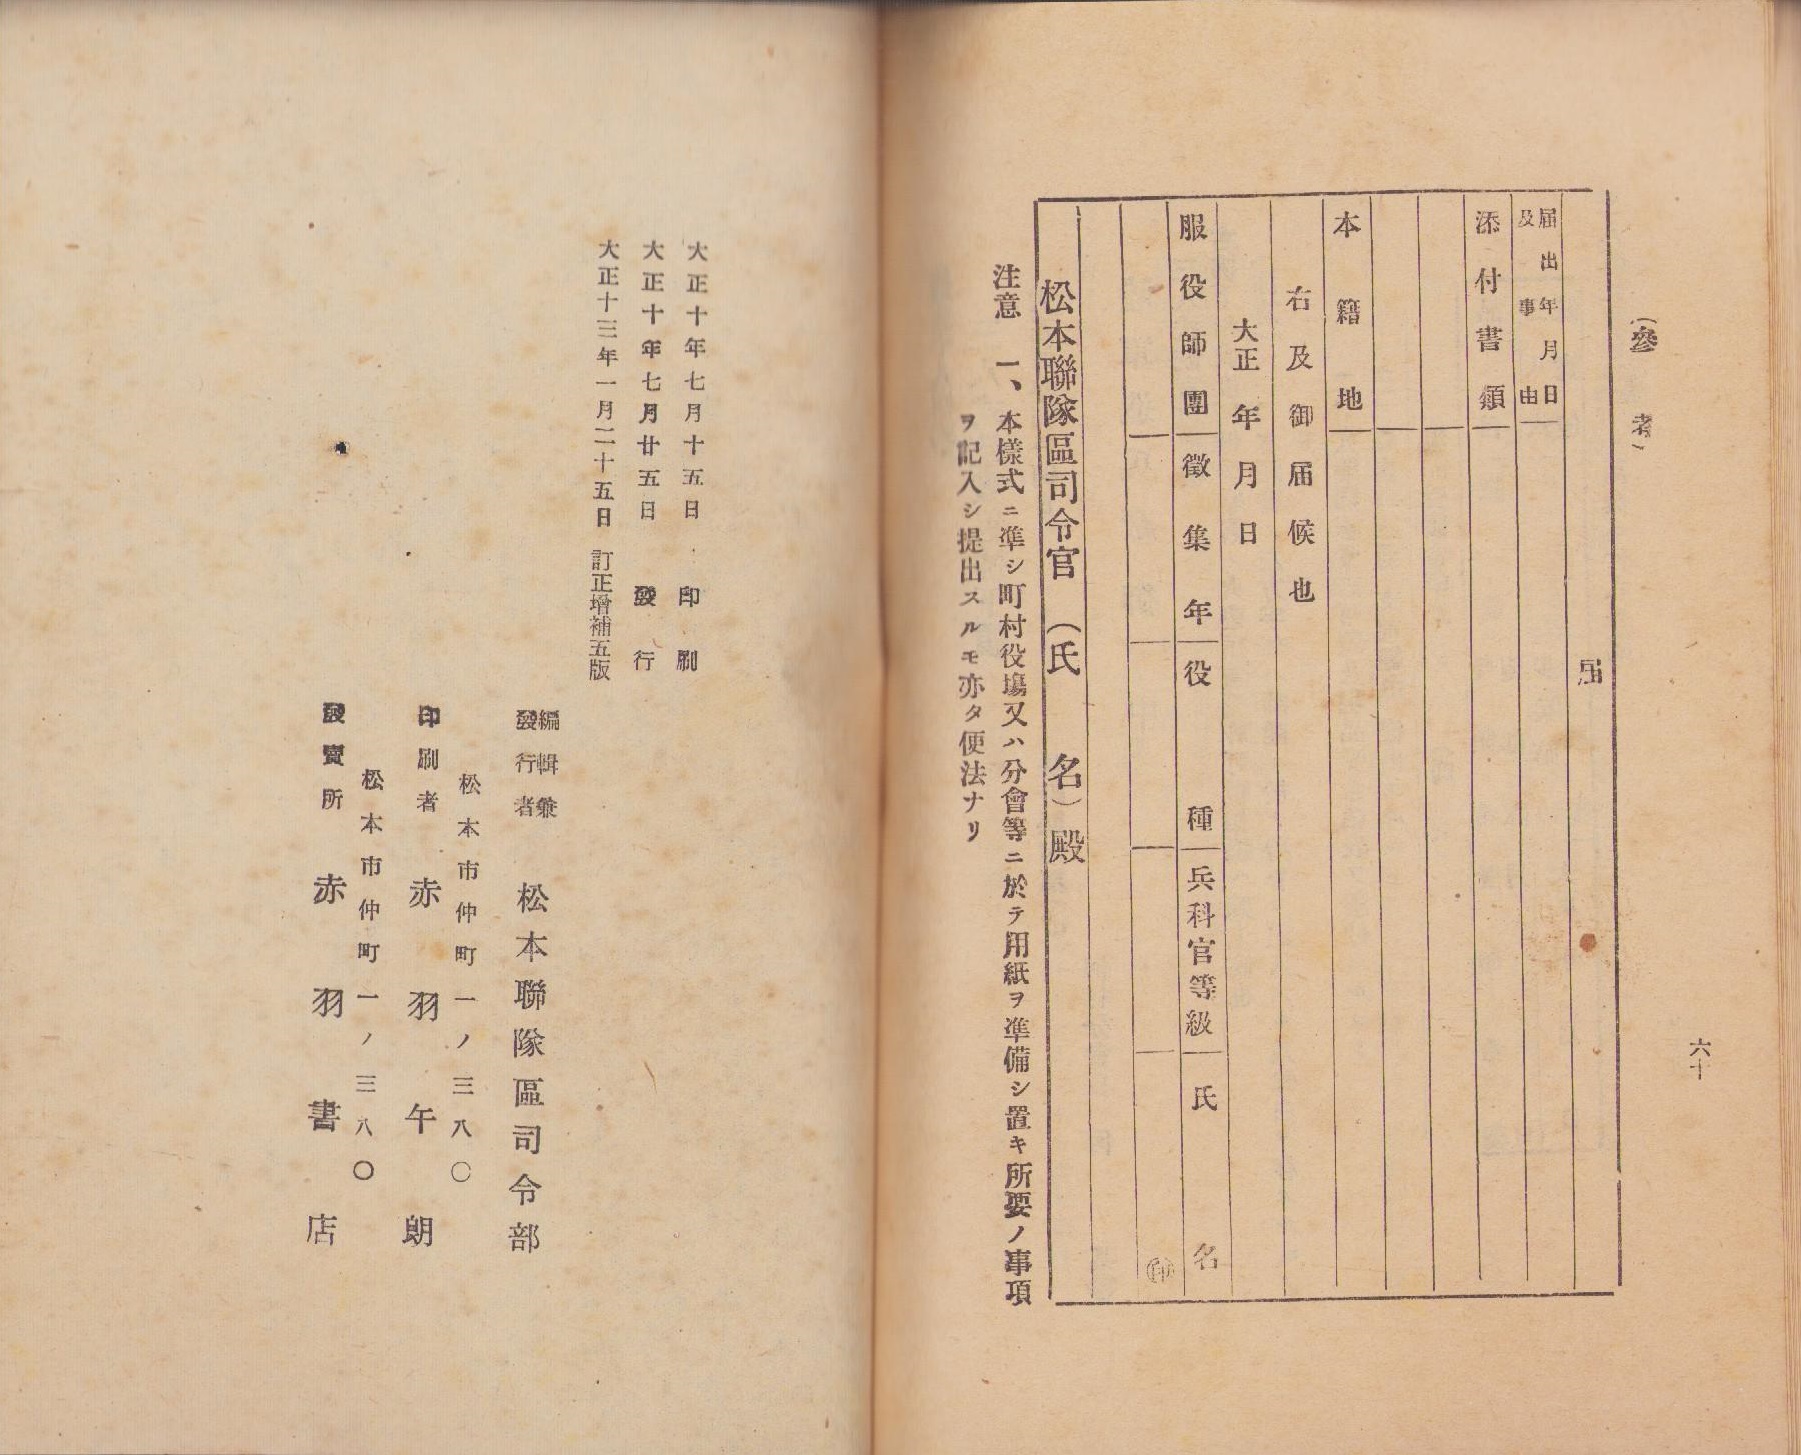 (參考)
六十
届
届出年月日
及事由
添付書類
本籍地
右及御届候也
大正年月日
服役師團 徵集年 役種 兵科官等級 氏名
㊞
松本聯隊區司令官(氏名)殿
注意 一、本樣式ニ準シ町村役塲又ハ分會等ニ於テ用紙ヲ準備シ置キ所要ノ事項
ヲ記入シ提出スルモ亦タ便法ナリ
大正十年七月十五日 印刷
大正十年七月廿五日 發行
大正十三年一月二十五日 訂正增補五版
編輯兼
發行者 松本聯隊區司令部
松本市仲町一ノ三八〇
印刷者 赤羽午朗
松本市仲町一ノ三八〇
發賣所 赤羽書店